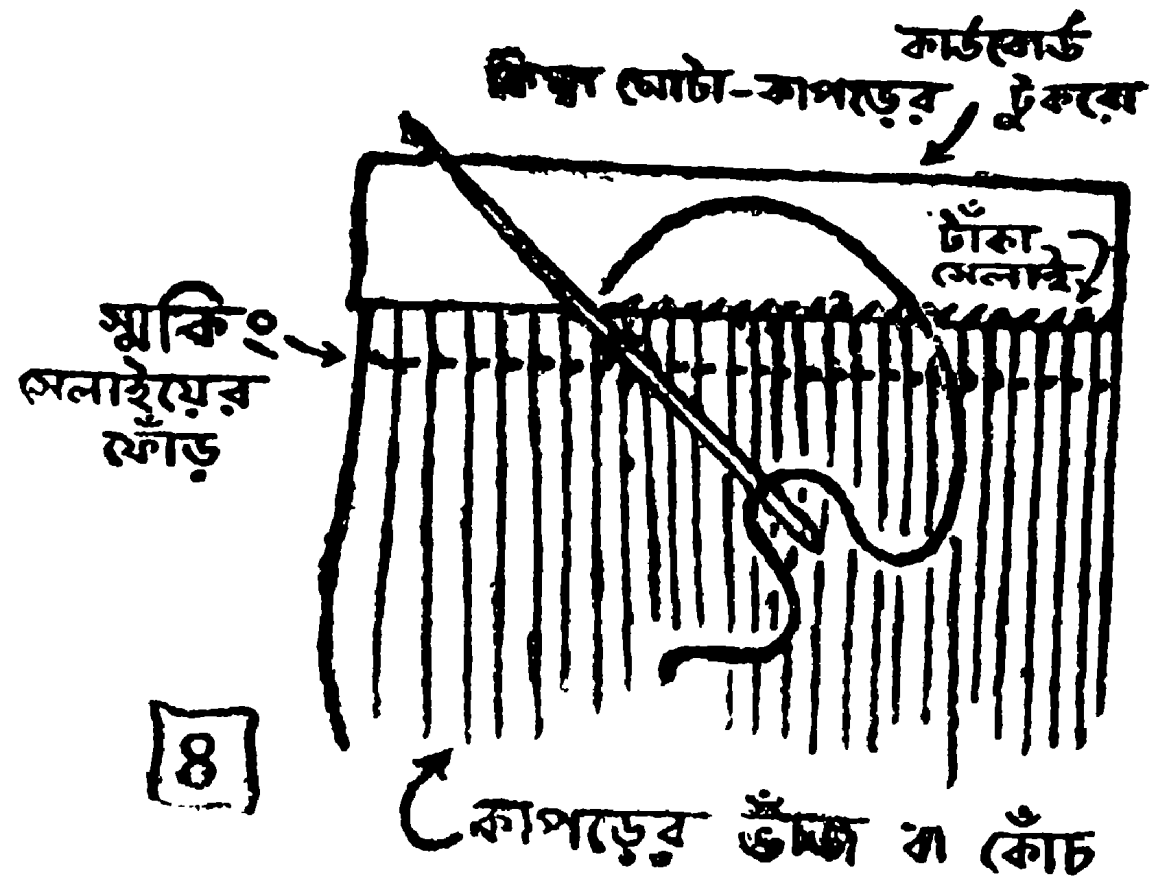 কার্ডবোর্ড
কিম্বা মোটা-কাপড়ের টুকরো
টাঁকা
সেলাই
স্মকিং
সেলাইয়ের
ফোঁড়
৪
কাপড়ের ভাঁজ বা কোঁচ